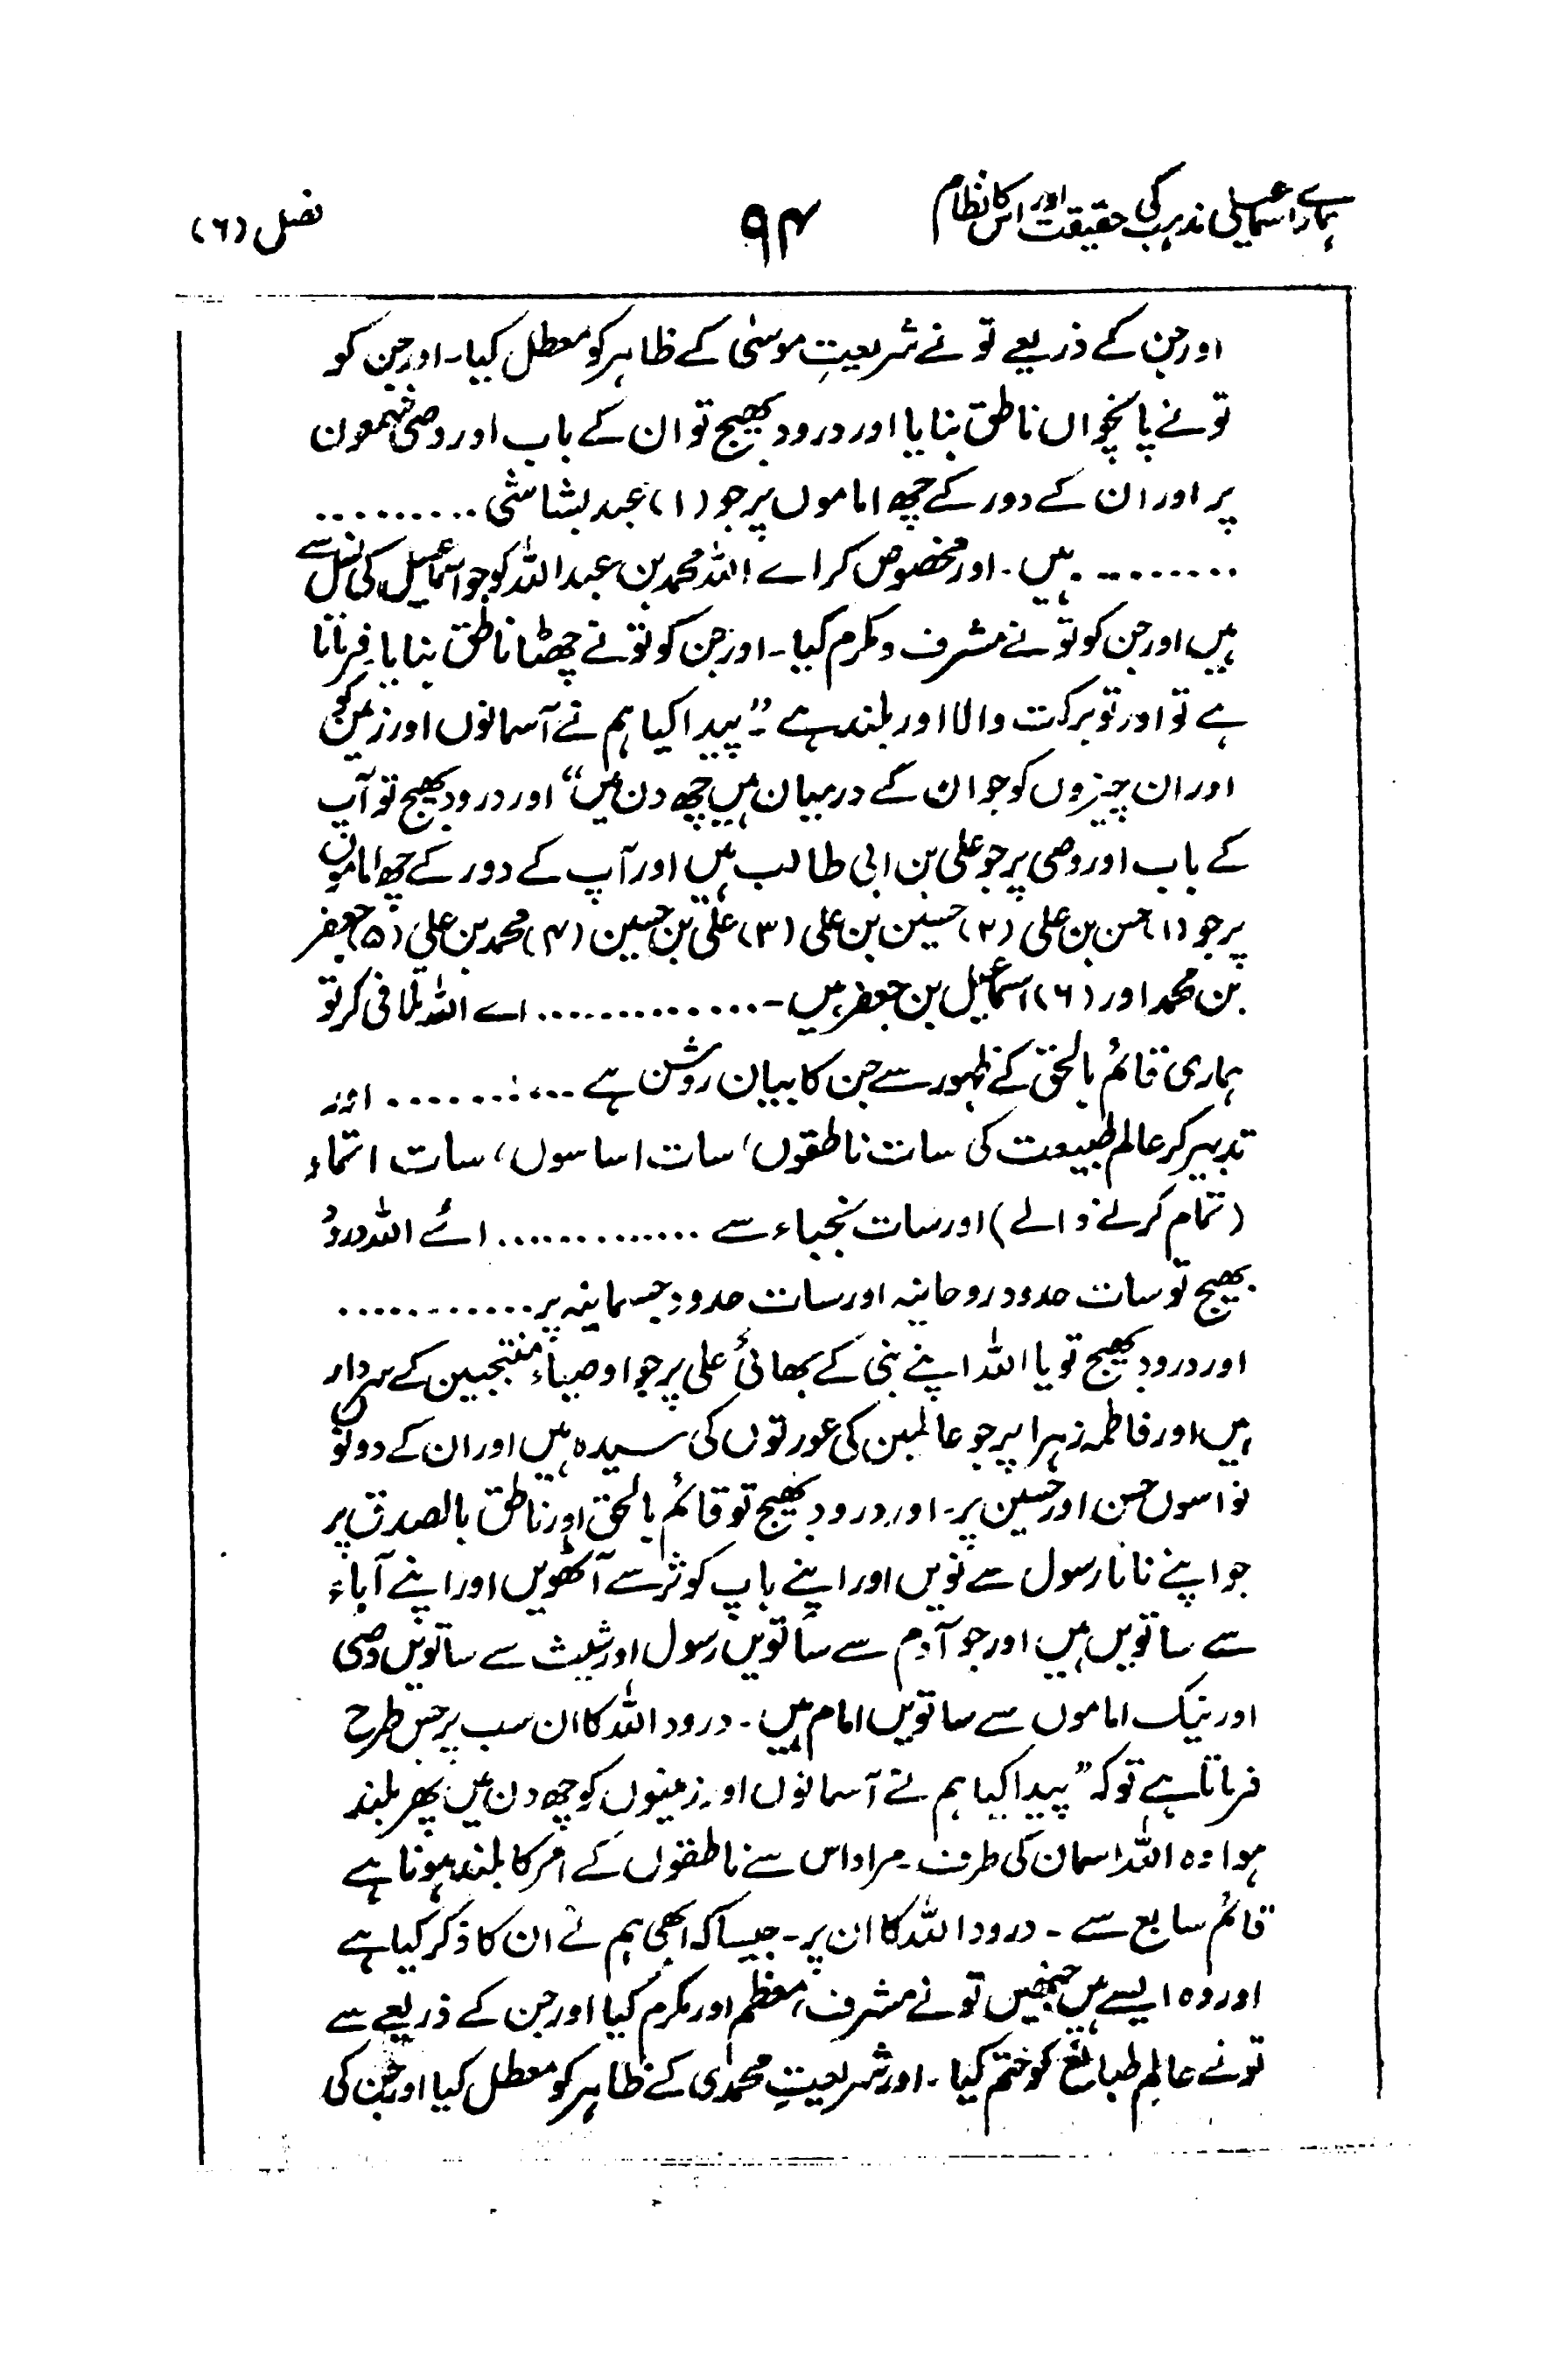 ہمارے اسماعیلی مذہب کی حقیقت اور اس کا نظام ۹۴ فصل (۶)
اور جن کے ذریعے تو نے شریعتِ موسیٰ کے ظاہر کو معطل کیا۔ اور جن کو
تو نے پانچواں ناطق بنایا اور درود بھیج تو ان کے باب اور وصی شمعون
پر اور ان کے دور کے چھ اماموں پر جو (۱) عبد بشاشی ..........
.......... ہیں۔ اور مخصوص کر اے اللہ محمد بن عبد اللہ کو جو اسماعیل کی نسل سے
ہیں اور جن کو تو نے مشرف و مکرم کیا۔ اور جن کو تو نے چھٹا ناطق بنایا فرماتا
ہے تو اور تو برکت والا اور بلند ہے :۔ "پیدا کیا ہم نے آسمانوں اور زمین کو
اور ان چیزوں کو جو ان کے درمیان ہیں چھ دن میں" اور درود بھیج تو آپ
کے باب اور وصی پر جو علی بن ابی طالب ہیں اور آپ کے دور کے چھ اماموں
پر جو (۱) حسن بن علی (۲) حسین بن علی (۳) علی بن حسین (۴) محمد بن علی (۵) جعفر
بن محمد اور (۶) اسماعیل بن جعفر ہیں۔ ............. اے اللہ تلافی کر تو
ہماری قائم بالحق کے ظہور سے جن کا بیان روشن ہے .......... اور
تدبیر کر عالم طبیعت کی سات ناطقوں، سات اساسوں، سات اتماء
(تمام کرنے والے) اور سات نجباء سے ............. اے اللہ درود
بھیج تو سات حدود روحانیہ اور سات حدود جسمانیہ پر ............
اور درود بھیج تو یا اللہ اپنے نبی کے بھائی علی پر جو اوصیاء منتجبین کے سردار
ہیں اور فاطمہ زہرا پر جو عالمین کی عورتوں کی سیدہ ہیں اور ان کے دونوں
نواسوں حسن اور حسین پر۔ اور درود بھیج تو قائم بالحق اور ناطق بالصدق پر
جو اپنے نانا رسول سے نویں اور اپنے باپ کوثر سے آٹھویں اور اپنے آباء
سے ساتویں ہیں اور جو آدم سے ساتویں رسول اور شیث سے ساتویں وصی
اور نیک اماموں سے ساتویں امام ہیں۔ درود اللہ کا ان سب پر جس طرح
فرماتا ہے تو کہ "پیدا کیا ہم نے آسمانوں اور زمینوں کو چھ دن میں پھر بلند
ہوا وہ اللہ اسمان کی طرف۔ مراد اس سے ناطقوں کے امر کا بلند ہونا ہے
قائم سابع سے ۔ درود اللہ کا ان پر۔ جیسا کہ ابھی ہم نے ان کا ذکر کیا ہے
اور وہ ایسے ہیں جنھیں تو نے مشرف، معظم اور مکرم کیا اور جن کے ذریعے سے
تو نے عالم طبائع کو ختم کیا۔ اور شریعتِ محمدی کے ظاہر کو معطل کیا اور جن کی